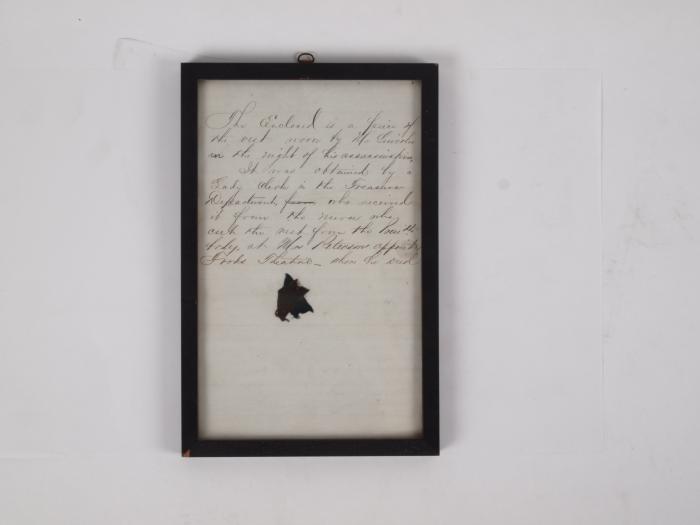 The Enclosed is a piece of
the vest worn by Mr Lincoln
on the night of his assassination,
It was obtained by a
Lady Clerk in the Treasury
Department, who received
it from the nurse who
cut the vest from the
body, at Mrs Petersons opposite
Fords Theatre — where he died